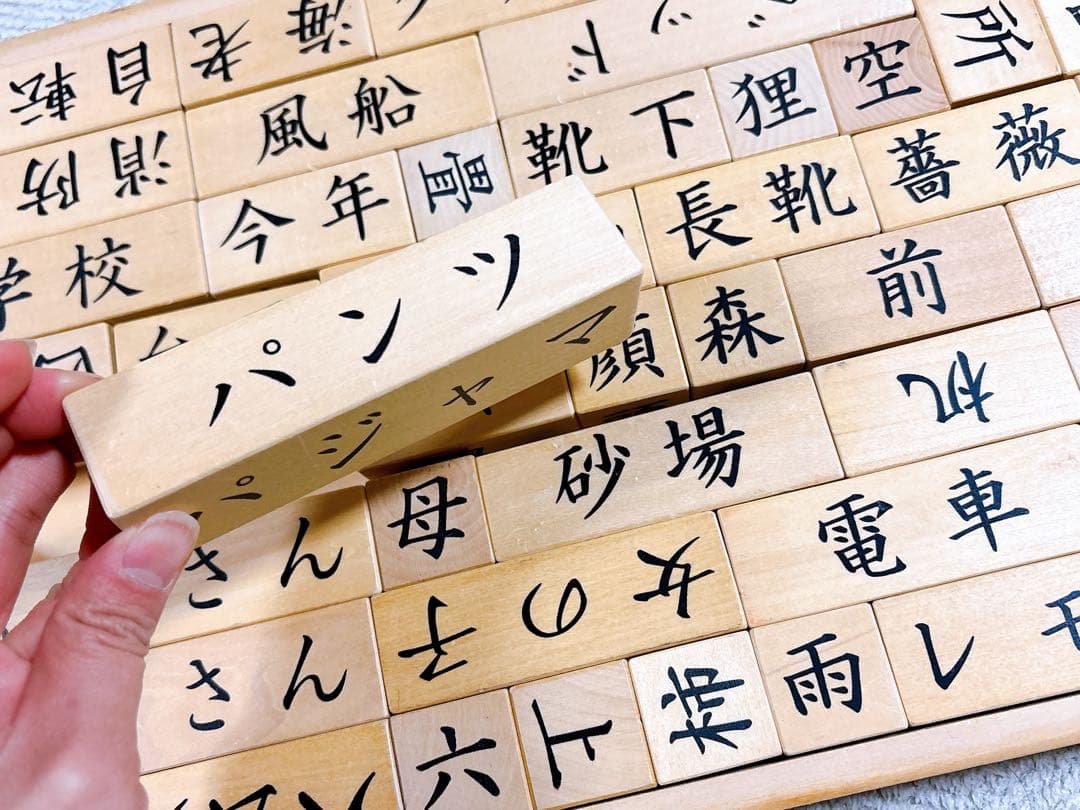 自転
老
海
ベッド
所
消防
風船
靴下
狸
空
今年
長靴
薔薇
学校
パンツ
パジャマ
顔
森
前
机
母
砂場
電車
さん
女の子
さん
六
上
柿
雨